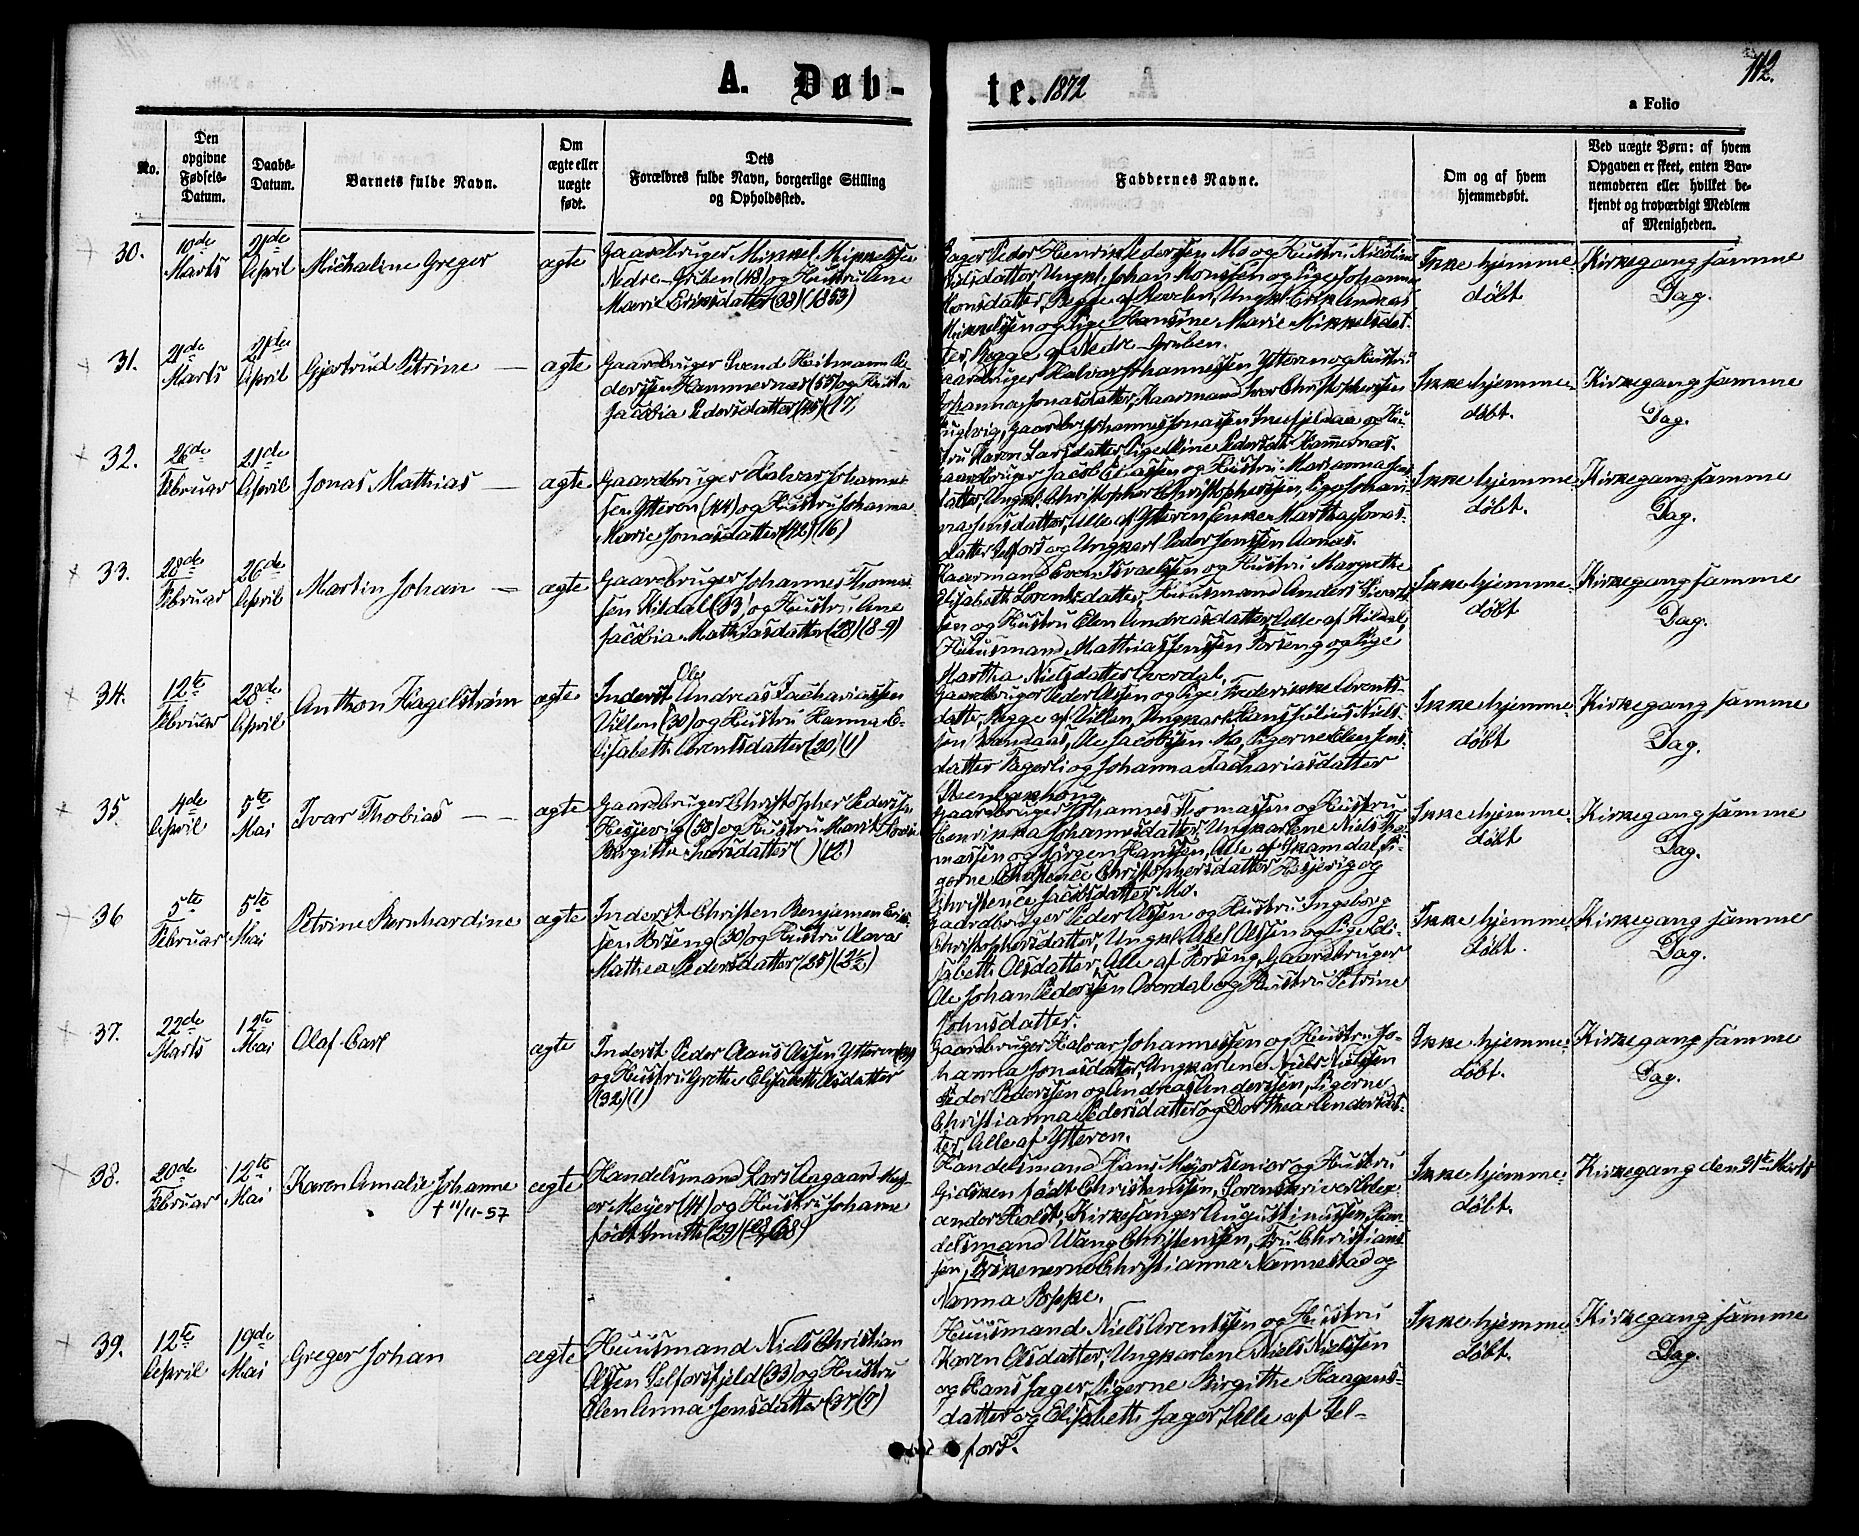 A. Døb-
te. 1872
112.
a Folio
No.
Den opgivne Fødsels-Datum.
Daabs-Datum.
Barnets fulde Navn.
Om ægte eller uægte født.
Dets Forældres fulde Navn, borgerlige Stilling og Opholdssted.
Faddernes Navne.
Om og af hvem hjemmedøbt.
Ved uægte Børn: af hvem Opgaven er skeet, enten Barnemoderen eller hvilket bekjendt og troværdigt Medlem af Menigheden.
30.
10de Marts
21de April
Michaline Greger
ægte
Gaardbruger Mikkel Mikkelsen
Nedre-Gruben (48) og Hustru Ane
Marie Eriksdatter (33) (1853)
Jager Peder Henrik Pederssen Mo og Hustru Nicoline
Nilsdatter, Ungkl. Johan Monssen og Pige Johanna
Monsdatter, Begge af Revelen, Ungkl Erik Andreas
Mikkelssen og Pige Hansine Marie Mikkelsdat-
ter, Begge af Nedre-Gruben.
Ikke hjemme-
døbt
Kirkegang samme
Dag.
31.
21de Marts
21de April
Gjertrud Petrine
ægte
Gaardbruger Svend Heitmann Pe-
derssen Hammernæs (55) og Hustru
Jacobia Pedersdatter (45) (17)
Gaardbruger Halvar Johannessen Ytteren og Hustru
Johanna Jonasdatter, Kaarmand Ivar Christophersen
Fuglvig, Gaardbr Johannes Jonassen Snefjeldaa og Hu-
stru Karen Larsdatter, Pige Mine Pedersdt. Hammernæs.
Ikke hjemme-
døbt.
Kirkegang samme
Dag.
32.
26de Februar
21de April
Jonas Mathias
ægte
Gaardbruger Halvar Johannes-
sen Ytteren (44) og Hustru Johanna
Marie Jonasdatter (42) (16)
Gaardbruger Jacob Eliassen og Hustru Marianna Jens-
datter, Ungkl. Christopher Christophersen, Pige Johan-
na Jensdatter, Alle af Ytteren Enke Martha Jonas-
datter Selfors og Ungkarl Peder Jenssen Aanæs.
Ikke hjemme-
døbt.
Kirkegang samme
Dag.
33.
28de Februar
26de April
Martin Johan
ægte
Gaardbruger Johannes Thomas-
sen Hildal (33) og Hustru Ane
Jacobia Mathiasdatter (28) (8-9)
Kaarmand Even Israelssen og Hustru Margrethe
Elisabeth Lorentsdatter, Huusmand Anders Sivert-
sen og Hustru Elen Andreasdatter, Alle af Hildal,
Huusmand Matthias Jenssen Forseng og Pige
Martha Nielsdatter Overdal.
Ikke hjemme-
døbt
Kirkegang samme
Dag.
34.
12te Februar
28de April
Anthon Hagelstrøm
ægte
Ole
Inderst Andreas Zachariassen
Villen (30) og Hustru Hanna E-
lisabeth Arentsdatter (20) (1)
Gaardbruger Peder Olssen og Pige Frederikke Arents-
datter, Begge af Villen, Ungkarl Hans Julius Niels-
sen, Ole Jacobssen Mo, Pigerne Elen Jens-
datter Fagerli og Johanna Zachariasdatter
Steenbækhøug
Ikke hjemme-
døbt
Kirkegang samme
Dag.
35.
4de April
5te Mai
Ivar Thobias
ægte
Gaardbruger Christopher Pederssen
Hesjevig (38) og Hustru Marit
Birgitha Larsdatter ( ) (12)
Gaardbruger Johannes Thomassen og Hustru
Henrikka Johannesdatter, Ungkarlene Niels Tho-
massen og Jørgen Hanssen, Alle af Skamdal, Pi-
gerne Christence Christophersdatter Hesjevig og
Christence Jacobsdatter Mo.
Ikke hjemme-
døbt
Kirkegang samme
Dag.
36
5te Februar
5te Mai
Petrine Bernhardine
ægte
Inderst Christen Benjamen Erik-
sen Forseng (30) og Hustru Olava
Mathea Pedersdatter (25) (2½)
Gaardbruger Peder Olssen og Hustru Ingeborg
Christophersdatter, Ungkl Abel Olssen og Pige Eli-
sabeth Olsdatter, Alle af Forseng, Gaardbruger
Ole Johan Pederssen Overdal og Hustru Petrine
Johnsdatter.
Ikke hjemme-
døbt.
Kirkegang samme
Dag.
37.
22de Marts
12te Mai
Olaf Carl
ægte
Inderst Peder Olaus Olssen Ytteren
og Hustru Grethe Elisabeth Olsdatter
(32) (1)
Gaardbruger Halvar Johannessen og Hustru Jo-
hanna Jonasdatter, Ungkarlene Niels Nielssen
Peder Pederssen og Andreas Anderssen, Pigerne
Christianna Pedersdatter og Dorthea Andersdat-
ter, Alle af Ytteren.
Ikke hjemme-
døbt.
Kirkegang samme
Dag.
38.
20de Februar
12te Mai
Karen Amalie Johanne
† 11/11-57
ægte
Handelsmand Lars Aagaard Mey-
er Meyer (41) og Hustru Johanne
født Smith (29) (22/68)
Handelsmand Hans Meyer senior og Hustru
Gidsken født Christenssen, Sorenskriver Alex-
ander Holst, Kirkesanger Augustinussen, Han-
delsmand Wang Christenssen, Fru Christians-
sen, Frøknerne Christianna Nannestad og
Nanna Poppe.
Ikke hjemme-
døbt.
Kirkegang den 21te Marts
39.
12te April
19de Mai
Greger Johan
ægte
Huusmand Niels Christian
Olssen Selforsfjeld (33) og Hustru
Elen Anna Jensdatter (37) (7)
Huusmand Niels Arentssen og Hustru
Karen Olsdatter, Ungkarlene Niels Nielssen
og Hans Jager, Pigerne Birgithe Haagens-
datter og Elisabeth Jager, Alle af Sel-
fors.
Ikke hjemme-
døbt.
Kirkegang samme
Dag.